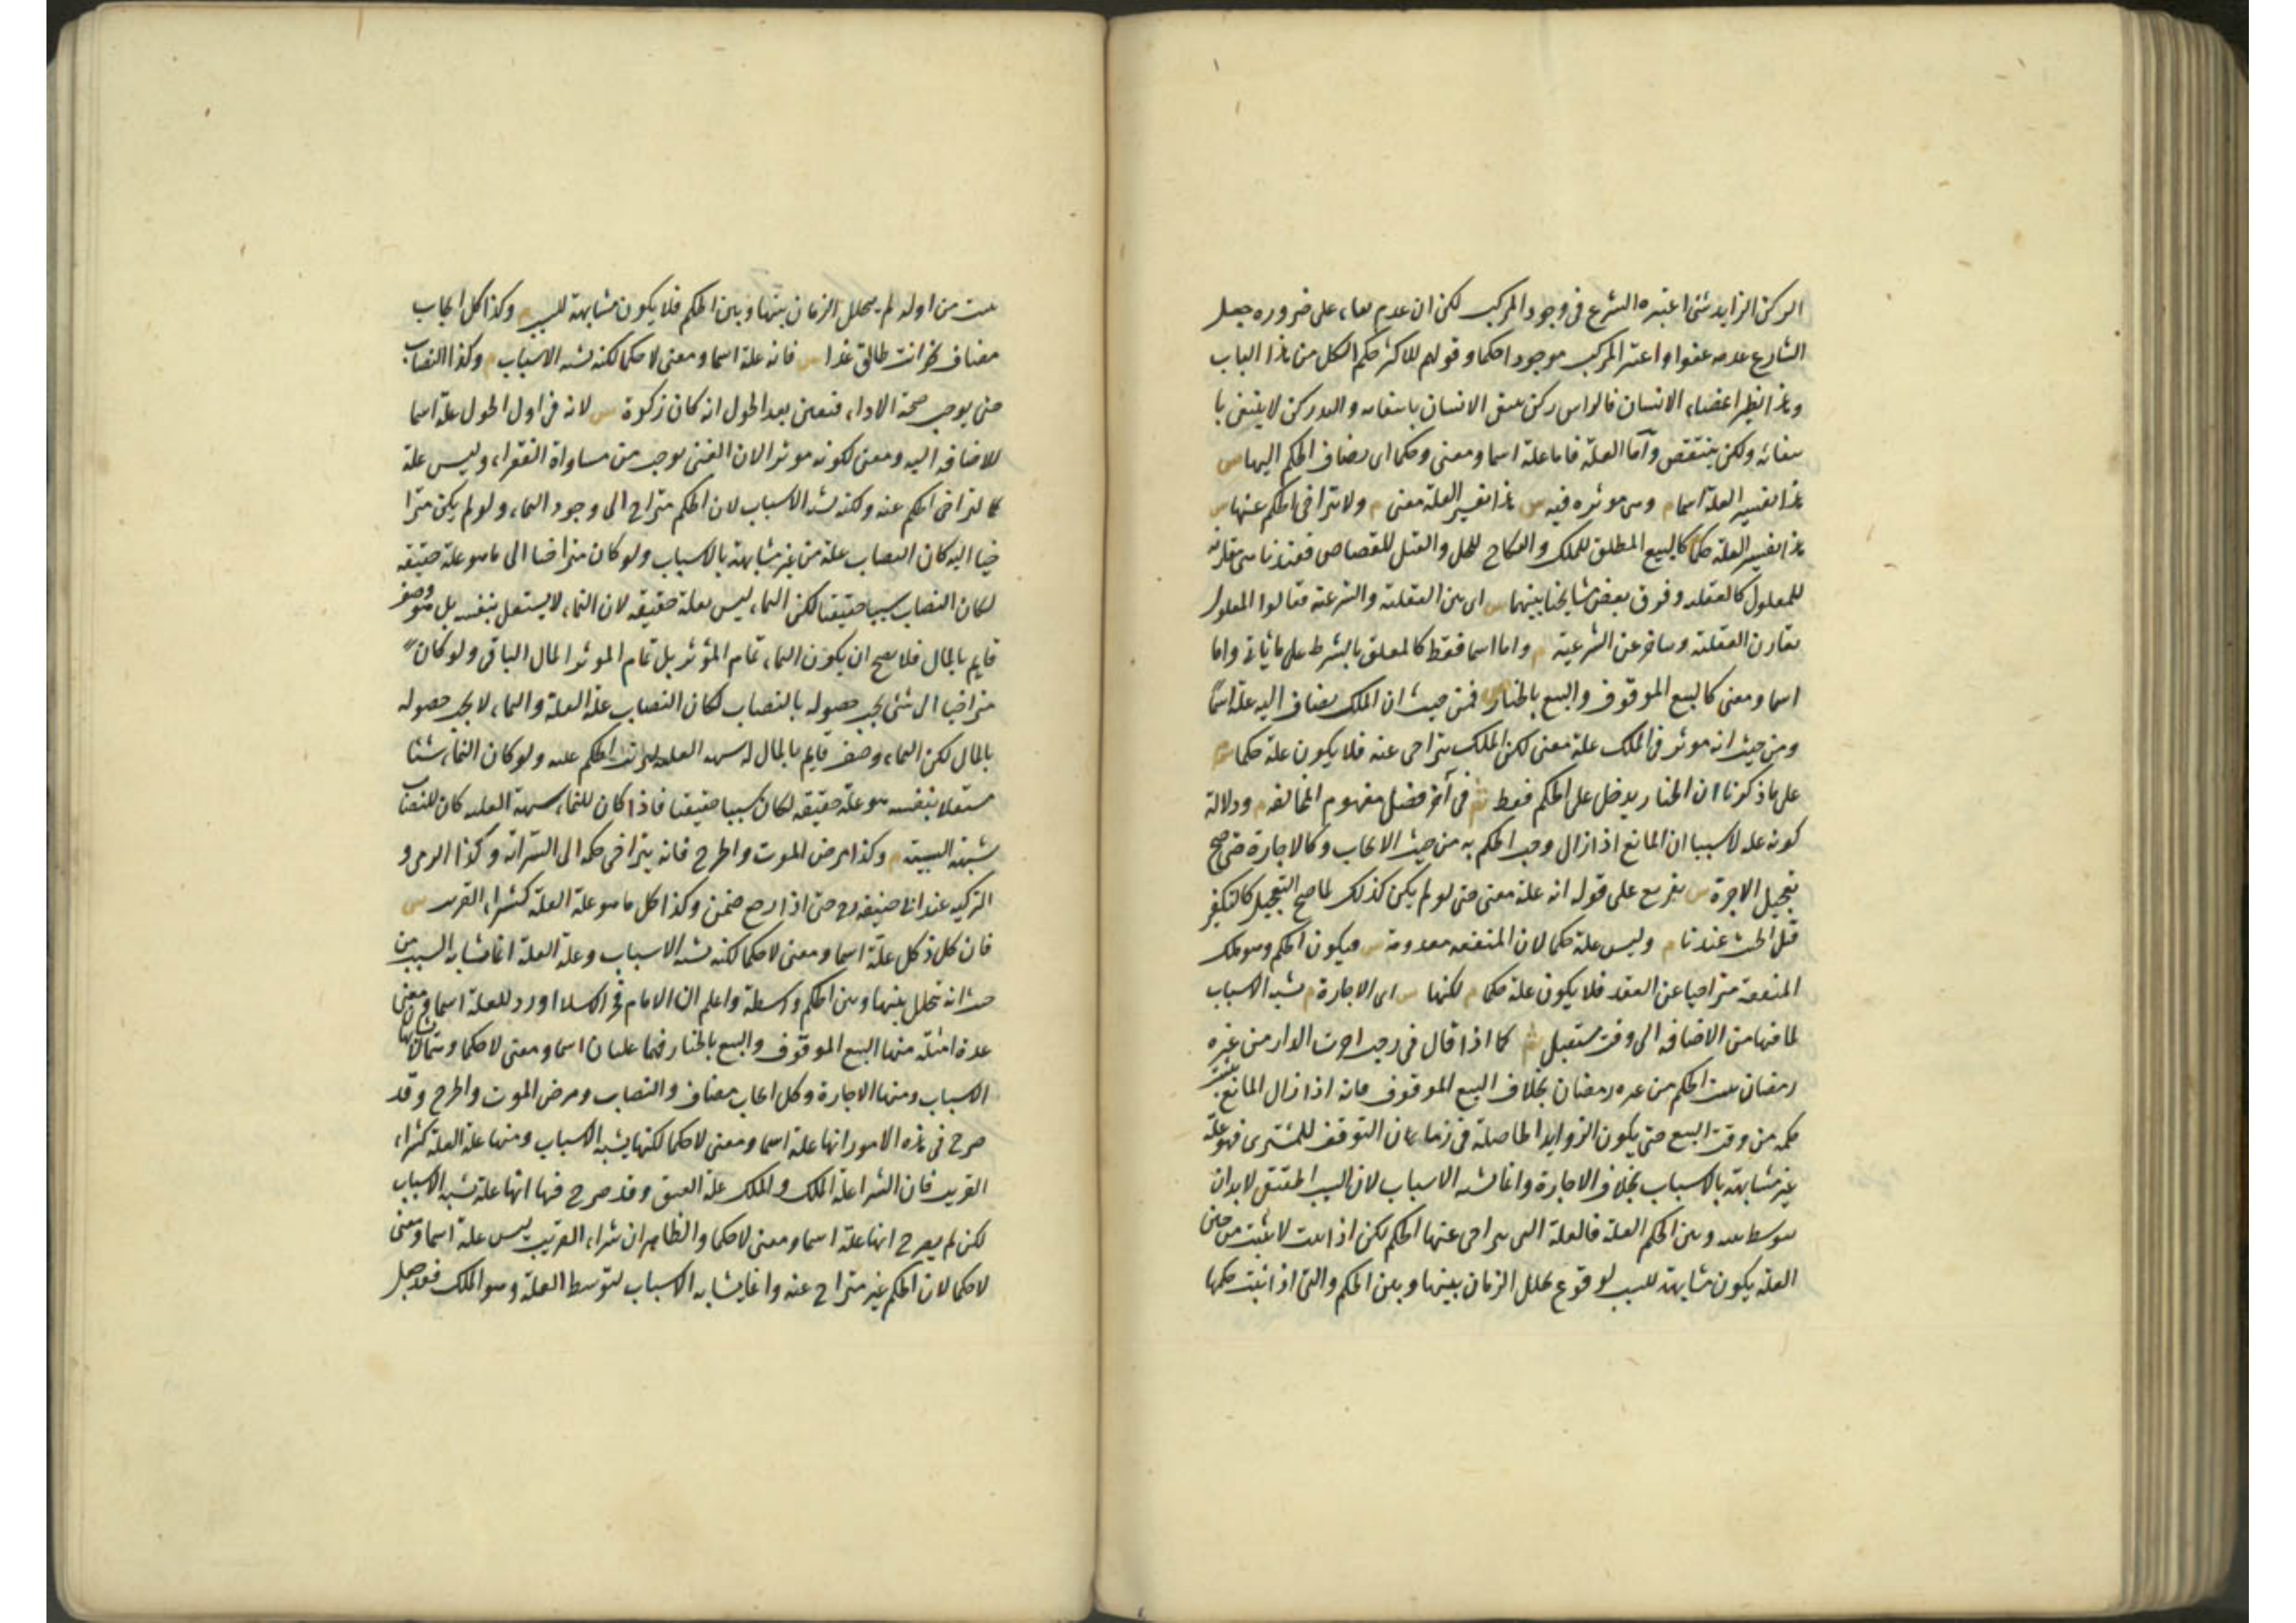 الركن الزايد شئ اعتبره الشرع فى وجود المركب لكن ان عدم بناء على ضروره جعل
الشارع عدمه عفوا واعتبر المركب موجودا حكما وقولهم للاكثر حكم الكل من هذا الباب
وهذا نظير اعضاء الانسان فالراس ركن ينتفى الانسان بانتفايه واليد ركن لا ينتفى با
نتفائه ولكن ينتقص واما العلة فاما علة اسما ومعنى وحكما اى يضاف الحكم اليها ش
هذا تفسير العلة اسما م وهى موثره فيه ش هذا تفسير العلة معنى م ولا يتراخى الحكم عنها ش
هذا تفسير العلة حكما م كالبيع المطلق للملك والنكاح للحل والقتل للقصاص فعندنا هى مقارنة
للمعلول كالعقلية وفرق بعض مشايخنا بينهما ش اى بين العقلية والشرعية فقالوا المعلول
يقارن العقلية ويتاخر عن الشرعية م واما اسما فقط كالمعلق بالشرط على ما ياتى واما
اسما ومعنى كالبيع الموقوف والبيع بالخيار ش فمن حيث ان الملك يضاف اليه علة اسما
ومن حيث انه موثر فى الملك علة معنى لكن الملك يتراخى عنه فلا يكون علة حكما م
على ما ذكرنا ان الخيار يدخل على الحكم فقط ش فى آخر فصل مفهوم المخالفة م ودلالة
كونه علة لا سببا ان المانع اذا زال وجب الحكم به من حيث الايجاب وكالاجارة حتى صح
تعجيل الاجرة ش تفريع على قوله انه علة معنى حتى لو لم يكن كذلك لما صح التعجيل كالتكفير
قبل الحنث عندنا م وليس علة حكما لان المنفعه معدومة ش فيكون الحكم وهو ملك
المنفعة متراخيا عن العقد فلا يكون علة حكما م لكنها ش اى الاجارة م تشبه الاسباب
لما فيها من الاضافه الى وقت مستقبل ش كما اذا قال فى رجب اجرت الدار من غره
رمضان يثبت الحكم من غره رمضان بخلاف البيع الموقوف فانه اذا زال المانع يثبت
حكمه من وقت البيع حتى يكون الزوايد الحاصلة فى زمان التوقف للمشترى فهو علة
غير مشابهة بالاسباب بخلاف الاجارة وانما تشبه الاسباب لان السبب الحقيقى لا بد ان
يتوسط بينه وبين الحكم العلة فالعلة التى يتراخى عنها الحكم لكن اذا ثبت لا يثبت من حين
العلة يكون مشابهة للسبب لوقوع تخلل الزمان بينها وبين الحكم والتى اذا ثبت حكمها
يثبت من اوله لم يتخلل الزمان بينها وبين الحكم فلا يكون مشابهة للسبب م وكذا كل ايجاب
مضاف نحو انت طالق غدا ش فانه علة اسما ومعنى لا حكما لكنه يشبه الاسباب م وكذا النصاب
حتى يوجب صحة الاداء فتعين بعد الحول انه كان زكوة ش لانه فى اول الحول علة اسما
للاضافة اليه ومعنى لكونه موثرا لان الغنى يوجب مساواة الفقراء وليس علة
حكما لتراخى الحكم عنه ولكنه يشبه الاسباب لان الحكم متراخ الى وجود النماء ولو لم يكن مترا
خيا اليه كان النصاب علة من غير مشابهة بالاسباب ولو كان متراخيا الى ما هو علة حقيقة
لكان النصاب سببا حقيقيا لكن النماء ليس بعلة حقيقه لان النماء لا يستقل بنفسه بل هو وصف
قايم بالمال فلا يصح ان يكون النماء تمام المؤثر بل تمام الموثر المال الباقى ولو كان
متراخيا الى شئ يجب حصوله بالنصاب لكان النصاب علة العلة والنماء لا يجب حصوله
بالمال لكن النماء وصف قايم بالمال له شبهة العلة لترتب الحكم عليه ولو كان النماء شيئا
مستقلا بنفسه هو علة حقيقه لكان سببا حقيقيا فاذا كان للنماء شبهة العلة كان للنصاب
شبهة السببية م وكذا مرض الموت والجرح فانه يتراخى حكمه الى السراية وكذا الرمى و
التزكيه عند ابى حنيفه رح حتى اذا رجع ضمن وكذا كل ما هو علة العلة كشراء القريب ش
فان كل ذلك علة اسما ومعنى لا حكما لكنه يشبه الاسباب وعلة العلة انما تشابه السبب من
حيث انه تخلل بينها وبين الحكم واسطة واعلم ان الامام فخر الاسلام اورد للعلة اسما ومعنى لا حكما
عدة امثلة منها البيع الموقوف والبيع بالخيار فهما علتان اسما ومعنى لا حكما ولا تشابهان
الاسباب ومنها الاجارة وكل ايجاب مضاف والنصاب ومرض الموت والجرح وقد
صرح فى هذه الامور انها علة اسما ومعنى لا حكما لكنها يشبه الاسباب ومنها علة العلة كشراء
القريب فان الشرا علة الملك والملك علة العتق وقد صرح فيها انها علة تشبه الاسباب
لكن لم يصرح انها علة اسما ومعنى لا حكما والظاهر ان شراء القريب ليس علة اسما ومعنى
لا حكما لان الحكم غير متراخ عنه وانما يشابه الاسباب لتوسط العلة وهو الملك فقد جعل